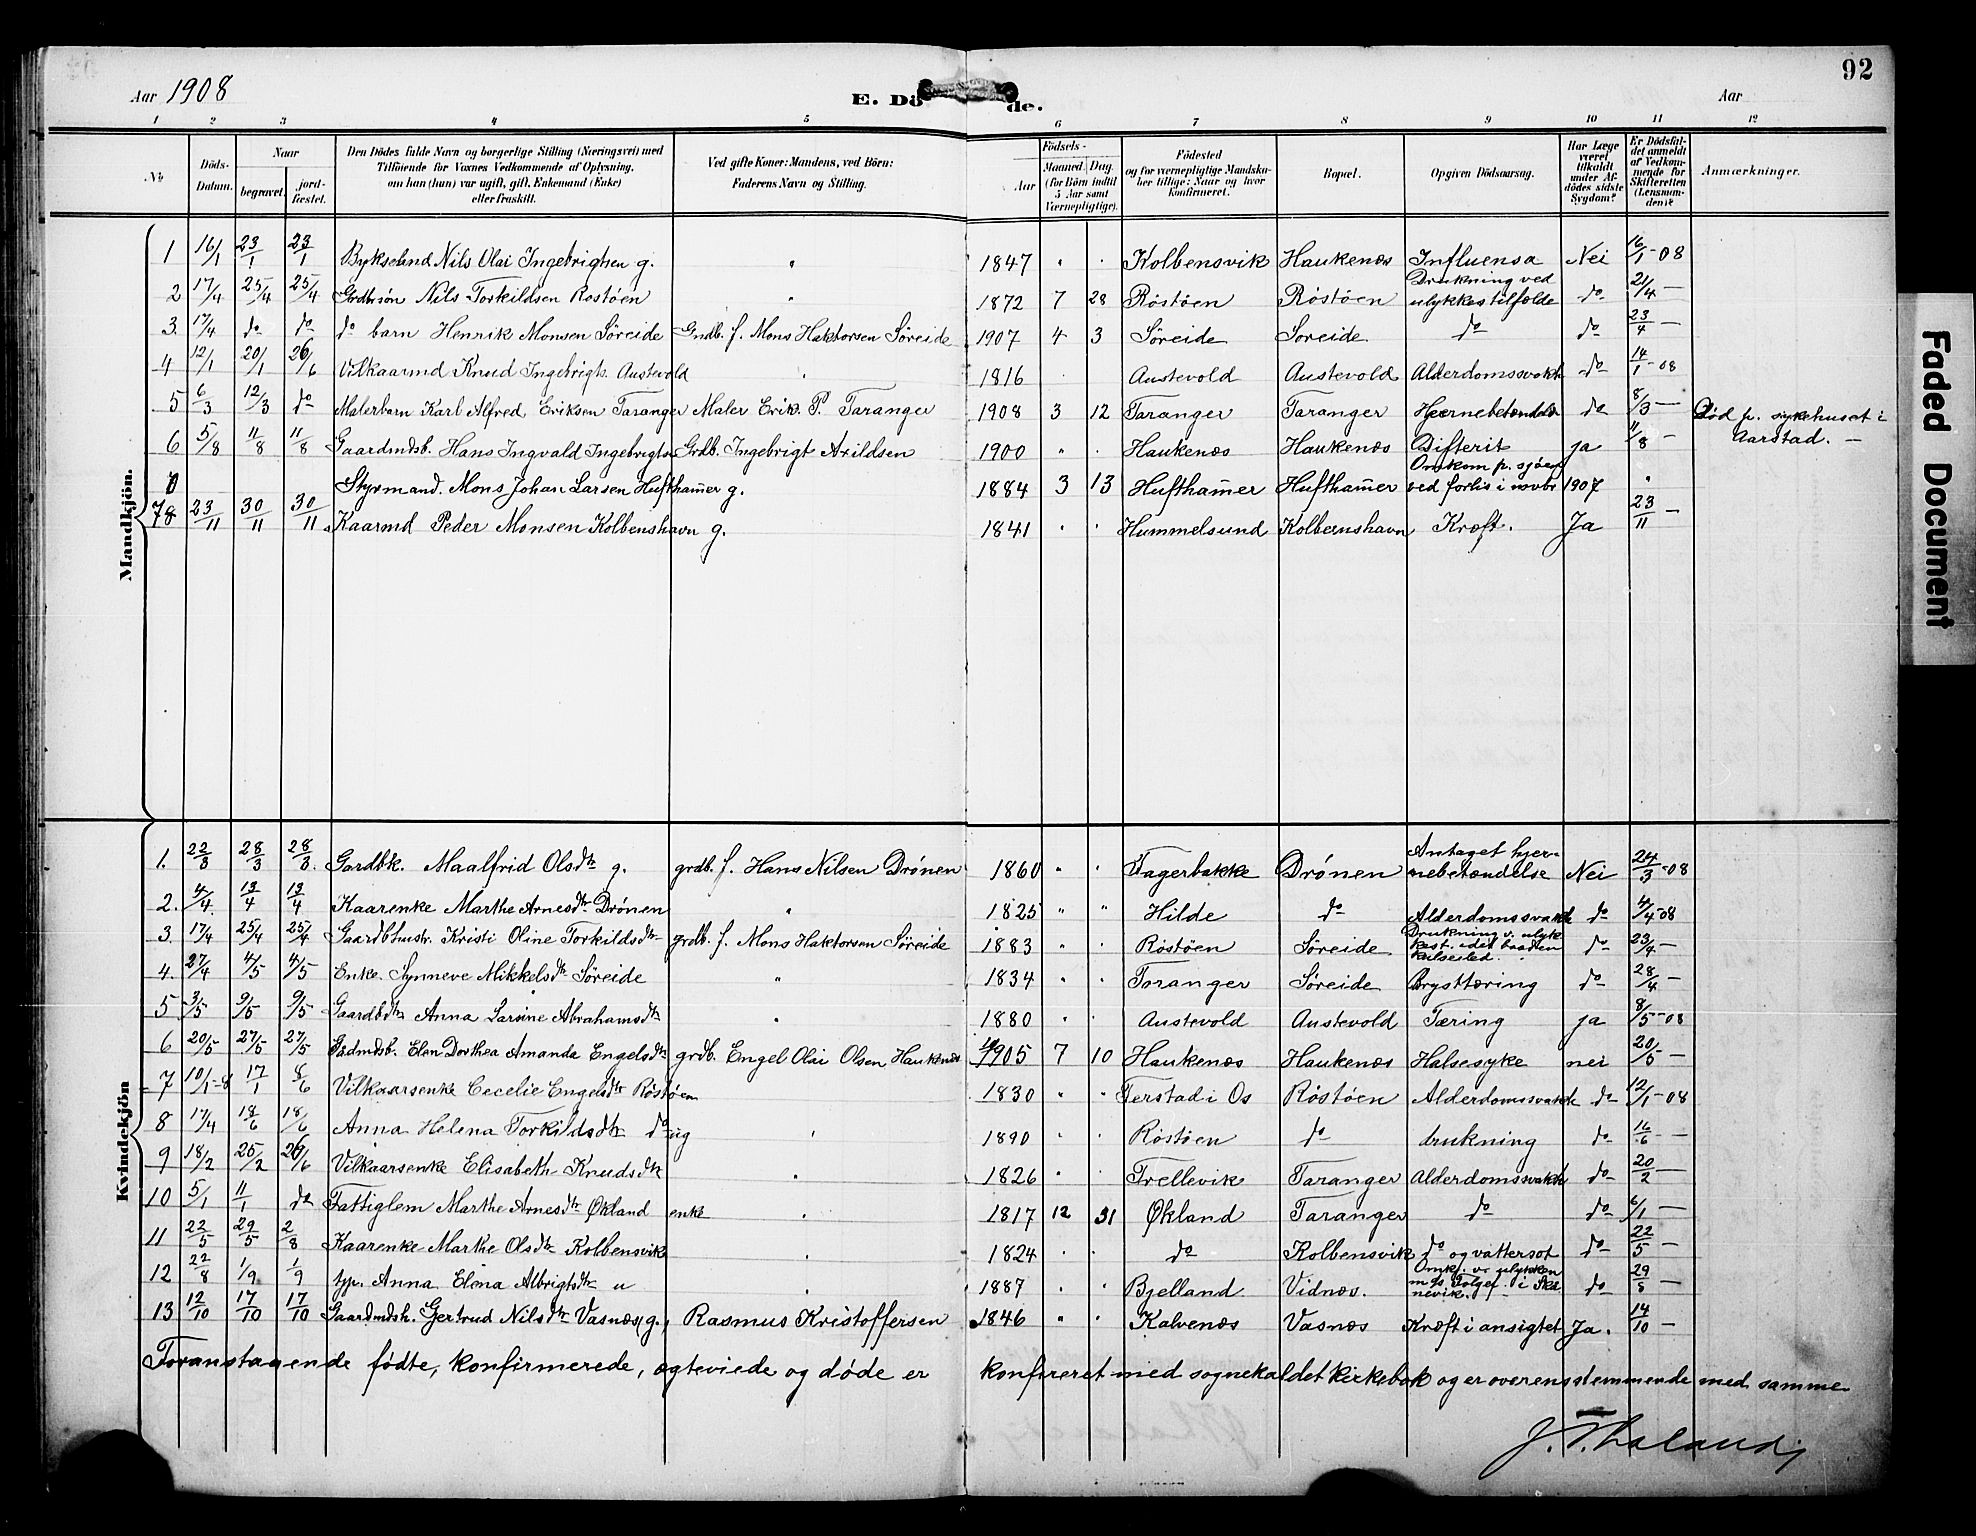 92
Aar 1908
E. Döde.
Aar
1 2 3 4 5 6 7 8 9 10 11 12
No
Döds-Datum.
Naar
begravet.
jord-fæstet.
Den Dödes fulde Navn og borgerlige Stilling (Næringsvei) med Tilföiende for Voxnes Vedkommende af Oplysning, om han (hun) var ugift, gift, Enkemand (Enke) eller fraskilt.
Ved gifte Koner: Mandens, ved Börn: Faderens Navn og Stilling.
Födsels-
Aar
Maaned. Dag.
(for Börn indtil 5 Aar samt Værnepligtige).
Födested og for værnepligtige Mandskaber tillige: Naar og hvor konfirmeret.
Bopæl.
Opgiven Dödsaarsag.
Har Læge været tilkaldt under Afdödes sidste Sygdom?
Er Dödsfaldet anmeldt af Vedkommende for Skifteretten (Lensmanden)?
Anmærkninger.
Mandkjön.
1 16/1 23/1 23/1 Bykselmd Nils Olai Ingebrigtsen g. " 1847 " " Kolbensvik Haukenæs Influensa Nei 16/1-08
2 17/4 25/4 25/4 Grdbrsön Nils Torkildsen Rostöen " 1872 7 28 Röstöen Röstöen Drukning ved ulykkestilfælde do 21/4 —
3. 17/4 do do do barn Henrik Monsen Söreide Gndb. f. Mons Haktorsen Söreide 1907 4 3 Söreide Soreide do do 23/4 —
4 12/1 20/1 26/6 Vilkaarmd Knud Ingebrigts. Austevold 1816 Austevold Austevold Alderdomssvakh do 14/1-08
5 6/3 12/3 do Malerbarn Karl Alfred Eriksen Taranger Maler Erik P. Taranger 1908 3 12 Taranger Taranger Hjernebetændels do 8/3 — Död p. sykehuset i Aarstad. —
6 5/8 11/8 11/8 Gaardmdsb. Hans Ingvald Ingebrigtsn Grdb. Ingebrigt Axildsen 1900 " " Haukenæs Haukenæs Difterit ja 11/8 —
7 Styrmand. Mons Johan Larsen Hufthamer g. 1884 3 13 Hufthamer Hufthamer Omkom p. sjöen ved forlis i novbr 1907 "
8 23/11 30/11 30/11 Kaarmd Peder Monsen Kolbenshavn g. 1841 " " Hummelsund Kolbenshavn Kræft. Ja 23/11 —
Kvindekjön
1. 22/3 28/3 28/3. Gardbk. Maalfrid Olsdtr g. grdb. f. Hans Nilsen Drönen 1860 " " Fagerbakke Drönen Antaget hjernebetændelse Nei 24/3-08
2. 4/4. 13/4 13/4 Kaarenke Marthe Arnesdtr Drönen " 1825 " " Hilde do Alderdomssvakh do 4/4-08
3. 17/4 25/4 25/4 Gaardbhustr. Kristi Oline Torkildsdtr grdb. f. Mons Haktorsen Söreide 1883 " " Röstöen Söreide Drukning v. ulykkest. idet baaden kulseiled. do 23/4 —
4. 27/4 4/5 4/5 Enke. Synneve Mikkelsdtr Söreide " 1834 " " Toranger Söreide Brysttæring do 28/4 —
5 3/5 9/5 9/5 Gaardbdtr Anna Larsine Abrahamsdtr " 1880 " " Austevold Austevold Tæring ja 8/5-08
6 20/5 27/5 27/5 Gådmdsb. Elen Dorthea Amanda Engelsdtr grdb. Engel Olai Olsen Haukenæs 1905 7 10 Haukenæs Haukenæs Halsesyke nei 20/5 —
7 10/1-8 17/1 8/6 Vilkaarsenke Cecelie Engelsdtr Röstöen 1830 " " Ferstad i Os Röstöen Alderdomssvakh do 12/1-08
8 17/4 18/6 18/6 Anna Helena Torkildsdtr do ug " 1890 " " Röstöen do drukning do 16/6 —
9 18/2 25/2 26/6 Vilkaarsenke Elisabeth Knudsdtr " 1826 " " Trellevik Taranger Alderdomssvakh do 20/2 —
10 5/1 11/1 do Fattiglem Marthe Arnesdtr Økland enke " 1817 12 31 Økland Taranger do do 6/1 —
11 22/5 29/5 2/8 Kaarenke Marthe Olsdtr Kolbensvik " 1824 " " do Kolbensvik do og vattersot do 22/5 —
12 22/8 1/9 1/9 tjp. Anna Elena Albrigtsdtr u " 1887 " " Bjelland Vidnæs. Omk. v. ulykken m/s Folgef. i Skånevik. do 29/8 —
13 12/10 17/10 17/10 Gaardmdsh. Gertrud Nilsdtr Vasnæs g., Rasmus Kristoffersen 1846 " " Kalvenæs Vasnæs Kræft i ansigtet Ja. 14/10 —
Foranstaaende födte, konfirmerede, ægteviede og döde er konfireret med sognekaldets kirkebok og er overensstemmende med samme
Faded Document